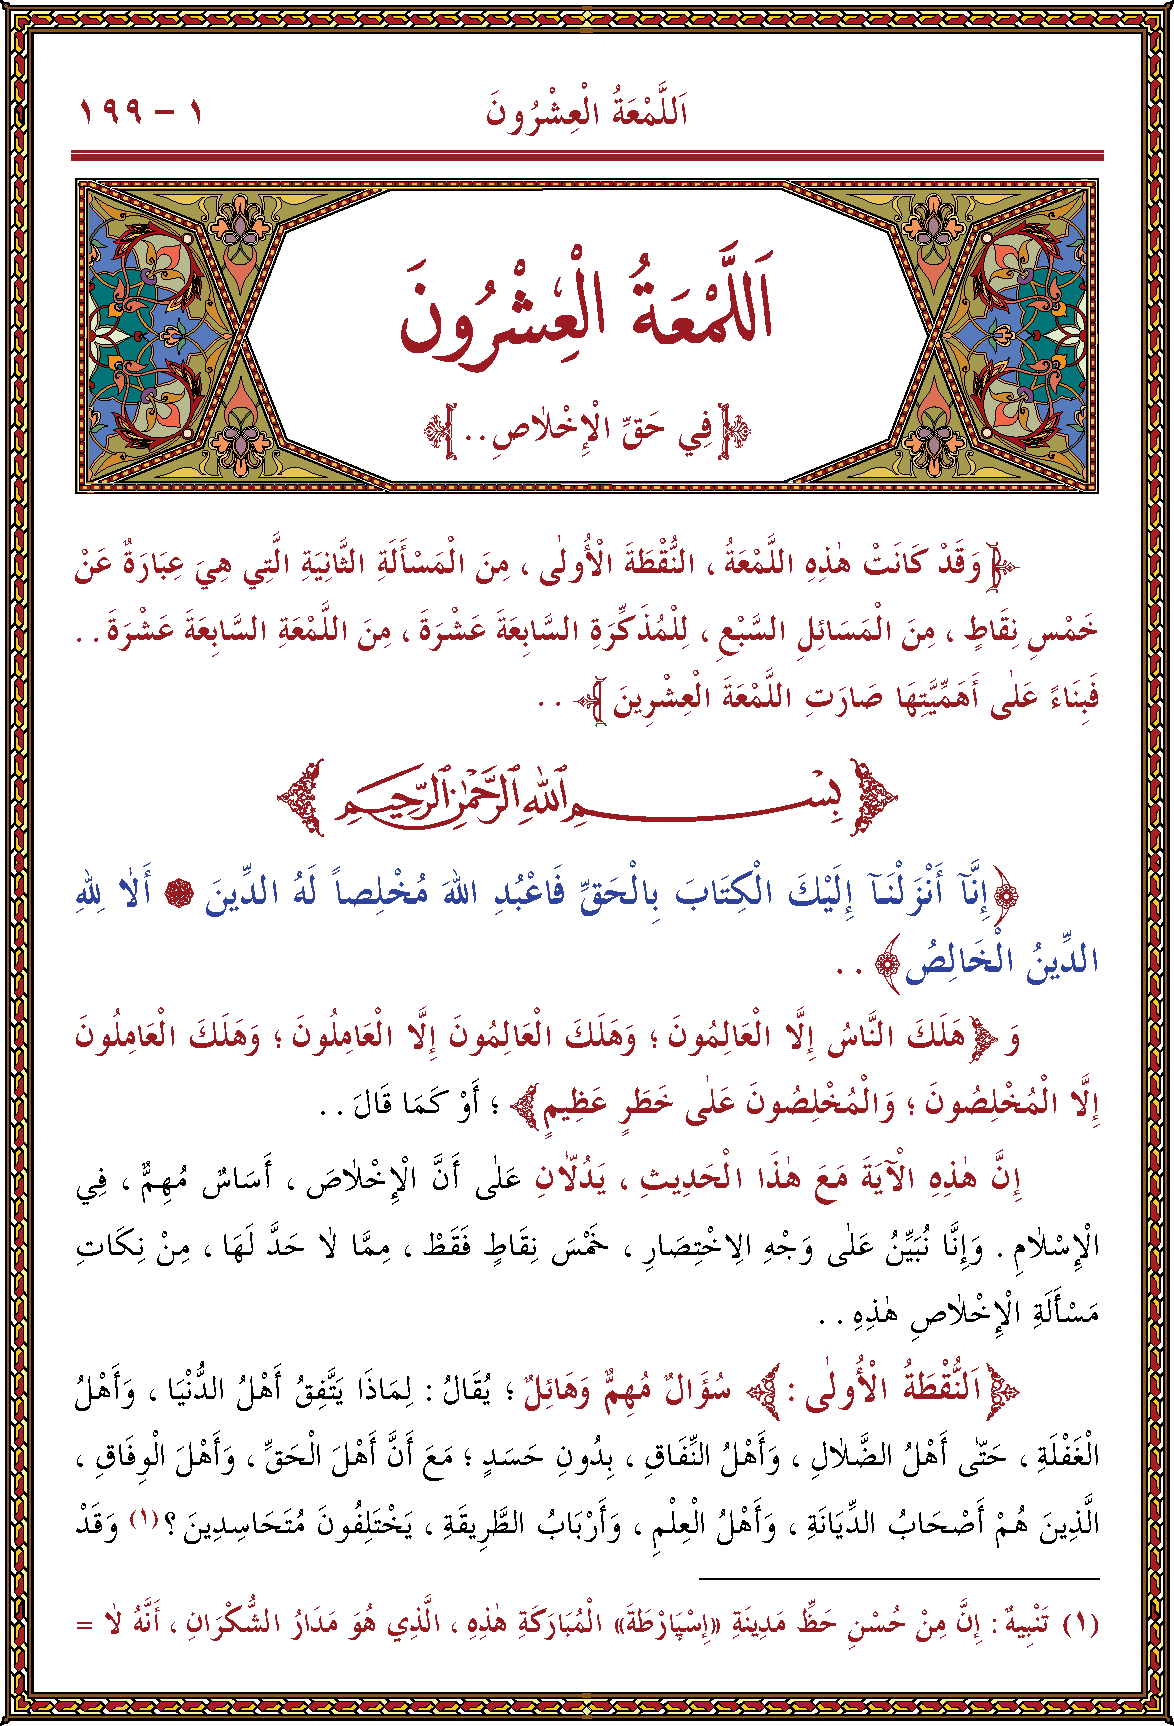 اَللَّمْعَةُ الْعِشْرُونَ
١ – ١٩٩
اَللَّمْعَةُ الْعِشْرُونَ
فِي حَقِّ الْإِخْلَاصِ . .
وَقَدْ كَانَتْ هٰذِهِ اللَّمْعَةُ ، النُّقْطَةَ الْأُولٰى ، مِنَ الْمَسْأَلَةِ الثَّانِيَةِ الَّتِي هِيَ عِبَارَةٌ عَنْ
خَمْسِ نِقَاطٍ ، مِنَ الْمَسَائِلِ السَّبْعِ ، لِلْمُذَكِّرَةِ السَّابِعَةَ عَشْرَةَ ، مِنَ اللَّمْعَةِ السَّابِعَةَ عَشْرَةَ . .
فَبِنَاءً عَلٰى أَهَمِّيَّتِهَا صَارَتِ اللَّمْعَةَ الْعِشْرِينَ . .
بِسْمِ اللهِ الرَّحْمٰنِ الرَّحِيمِ
﴿إِنَّآ أَنْزَلْنَآ إِلَيْكَ الْكِتَابَ بِالْحَقِّ فَاعْبُدِ اللهَ مُخْلِصاً لَهُ الدِّينَ ۞ أَلَا لِلّٰهِ
الدِّينُ الْخَالِصُ﴾ . .
وَ هَلَكَ النَّاسُ إِلَّا الْعَالِمُونَ ؛ وَهَلَكَ الْعَالِمُونَ إِلَّا الْعَامِلُونَ ؛ وَهَلَكَ الْعَامِلُونَ
إِلَّا الْمُخْلِصُونَ ؛ وَالْمُخْلِصُونَ عَلٰى خَطَرٍ عَظِيمٍ ؛ أَوْ كَمَا قَالَ . .
إِنَّ هٰذِهِ الْآيَةَ مَعَ هٰذَا الْحَدِيثِ ، يَدُلَّانِ عَلٰى أَنَّ الْإِخْلَاصَ ، أَسَاسٌ مُهِمٌّ ، فِي
الْإِسْلَامِ . وَإِنَّا نُبَيِّنُ عَلٰى وَجْهِ الِاخْتِصَارِ ، خَمْسَ نِقَاطٍ فَقَطْ ، مِمَّا لَا حَدَّ لَهَا ، مِنْ نِكَاتِ
مَسْأَلَةِ الْإِخْلَاصِ هٰذِهِ . .
اَلنُّقْطَةُ الْأُولٰى : سُؤَالٌ مُهِمٌّ وَهَائِلٌ ؛ يُقَالُ : لِمَاذَا يَتَّفِقُ أَهْلُ الدُّنْيَا ، وَأَهْلُ
الْغَفْلَةِ ، حَتّٰى أَهْلُ الضَّلَالِ ، وَأَهْلُ النِّفَاقِ ، بِدُونِ حَسَدٍ ؛ مَعَ أَنَّ أَهْلَ الْحَقِّ ، وَأَهْلَ الْوِفَاقِ ،
الَّذِينَ هُمْ أَصْحَابُ الدِّيَانَةِ ، وَأَهْلُ الْعِلْمِ ، وَأَرْبَابُ الطَّرِيقَةِ ، يَخْتَلِفُونَ مُتَحَاسِدِينَ ؟(١) وَقَدْ
(١) تَنْبِيهٌ : إِنَّ مِنْ حُسْنِ حَظِّ مَدِينَةِ «إِسْپَارْطَةَ» الْمُبَارَكَةِ هٰذِهِ ، الَّذِي هُوَ مَدَارُ الشُّكْرَانِ ، أَنَّهُ لَا =